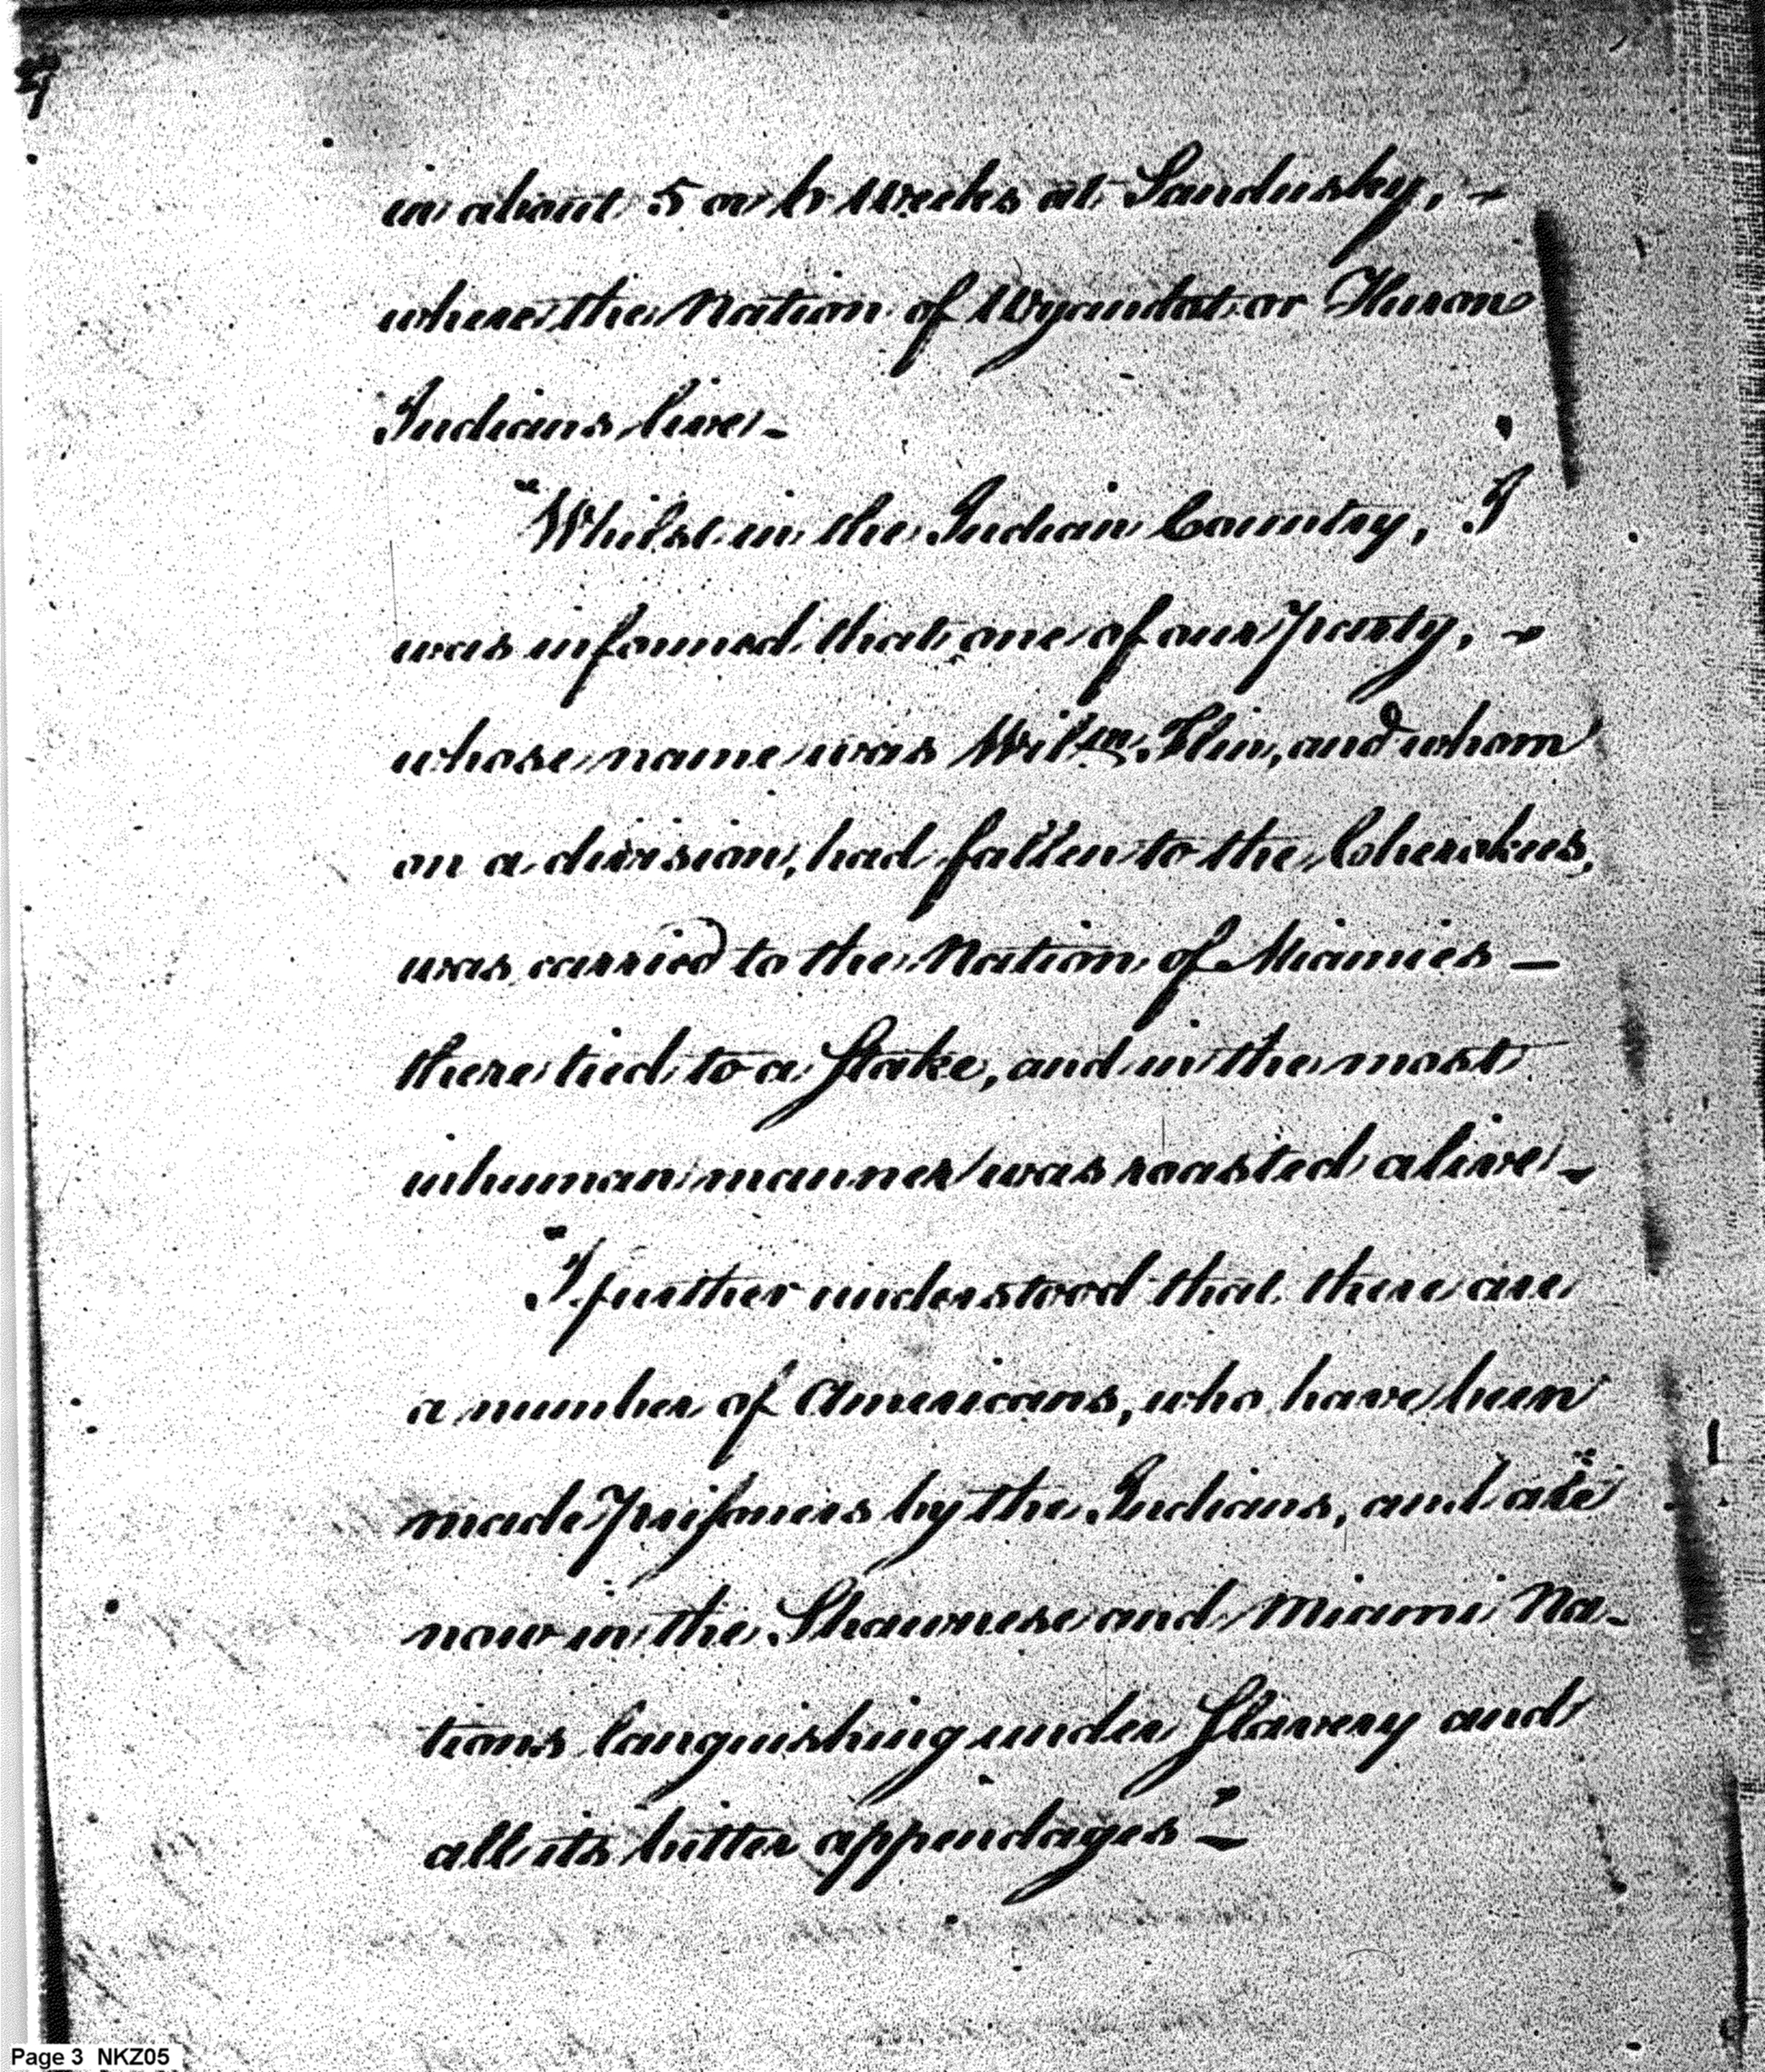 in about 5 or 6 Weeks at Sandusky, -
where the Nation of Wyandot or Huron
Indians live -
"Whilst in the Indian Country, I
was informed that one of our party, -
whose name was Willm. Flin, and whom
on a division, had fallen to the Cherokees,
was carried to the Nation of Miamies —
there tied to a Stake, and in the most
inhuman manner was roasted alive -
"I further understood that there are
a number of Americans, who have been
made prisoners by the Indians, and are
now in the Shawnese and Miami Na-
tions languishing under Slavery and
all its bitter appendages" -
Page 3 NKZ05